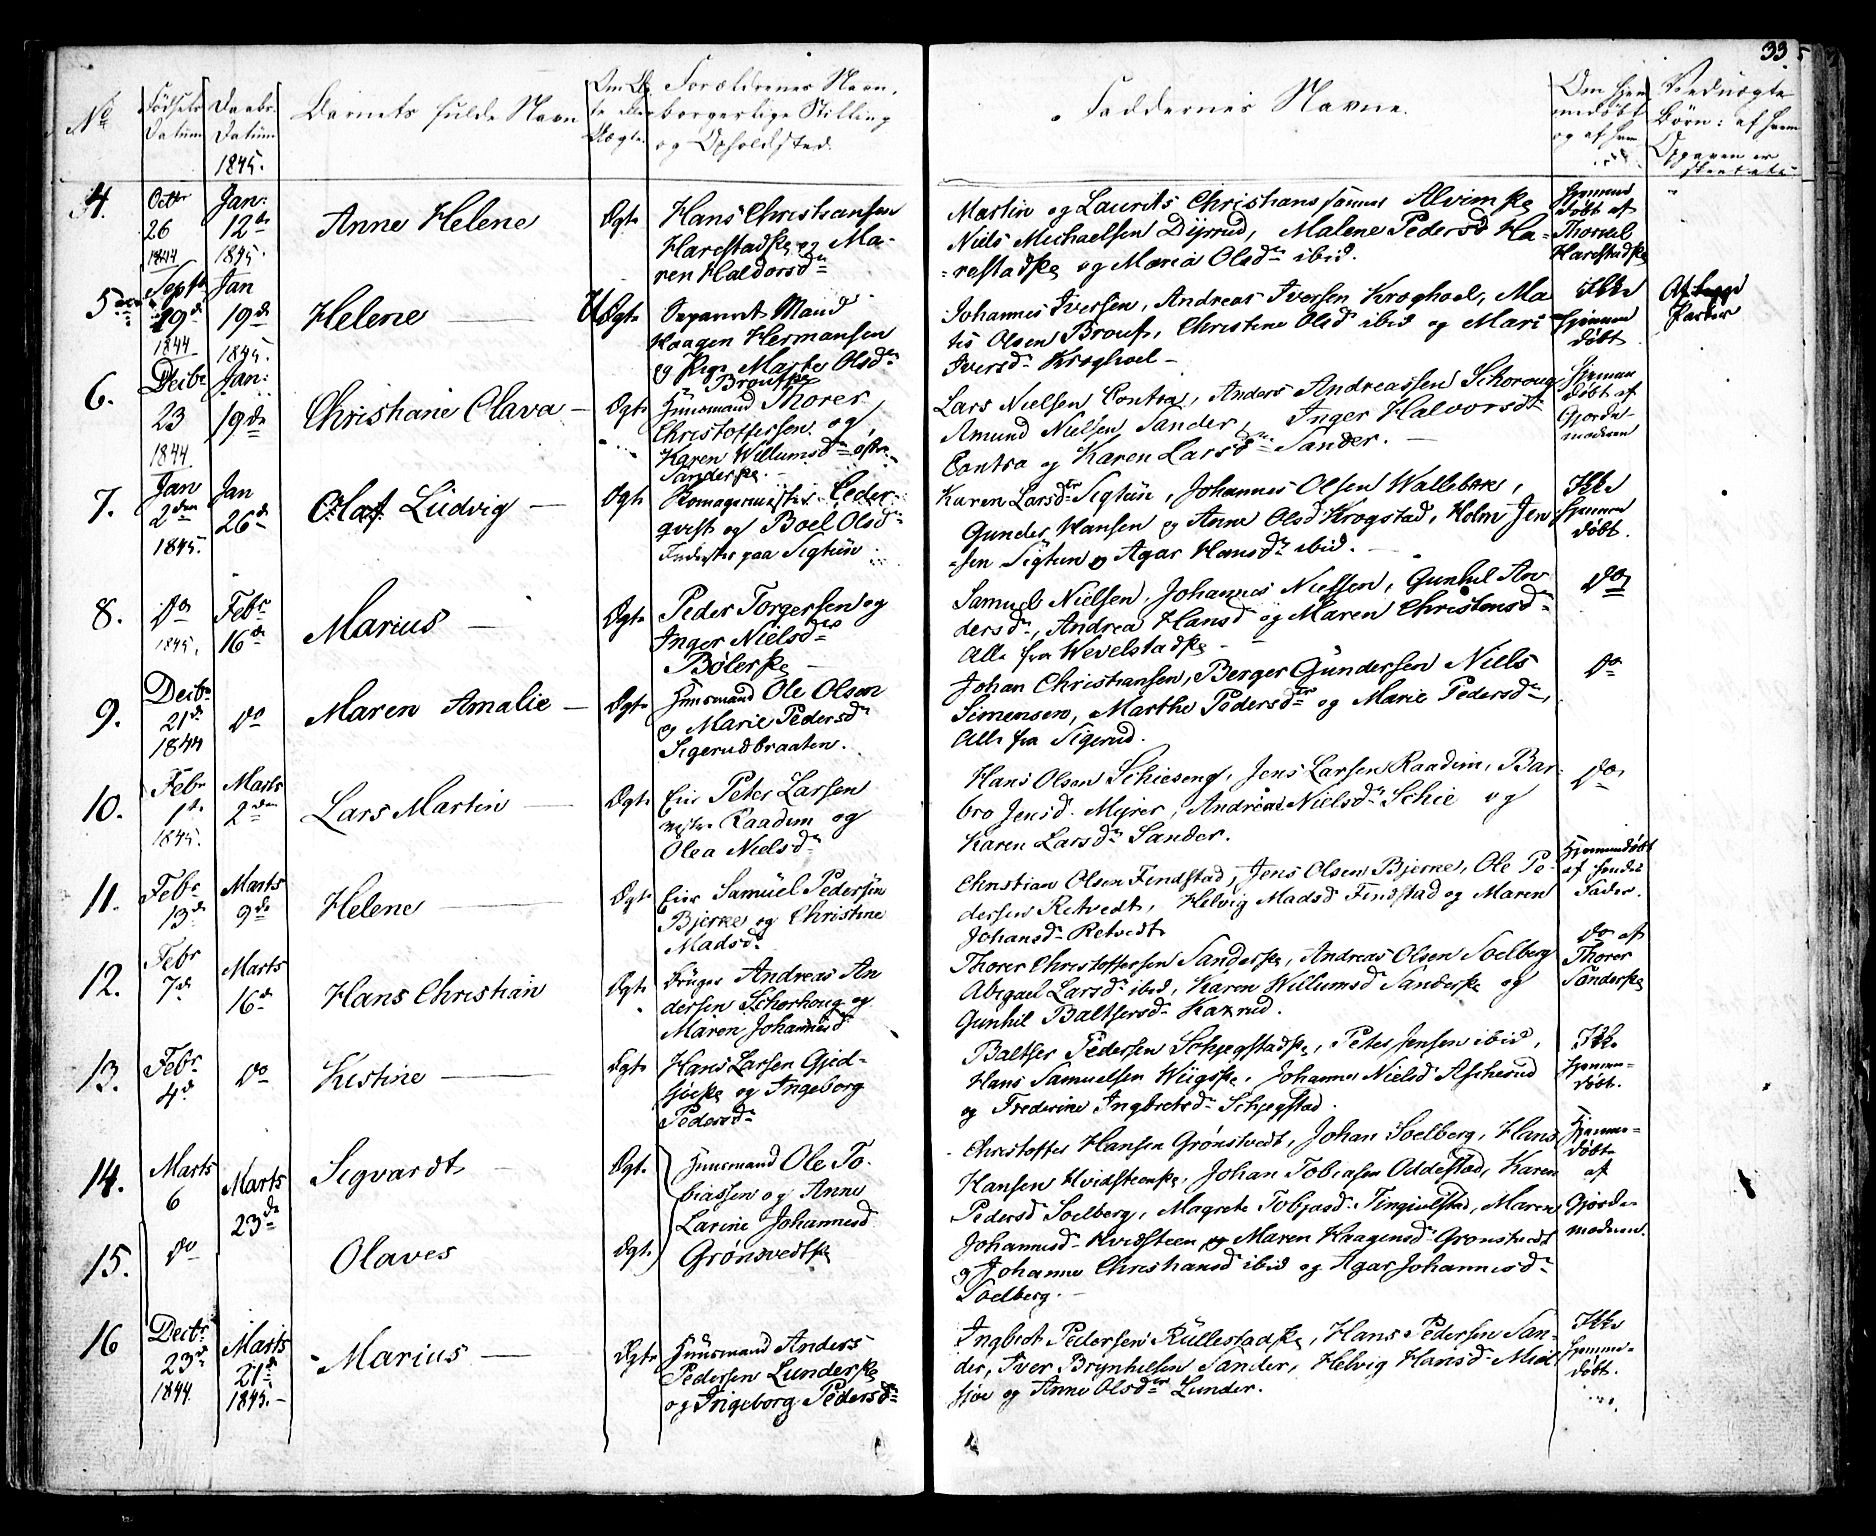 33.
No
Fødsels Datum
Daabs Datum
1845.
Barnets fulde Navn
Om Ægte eller Uægte
Forældrenes Navn, borgerlige Stilling og Opholdsted.
Faddernes Navne.
Om hjemmedøbt og af hvem
Uægte Børn: af hvem Opgaven er
4.
Octbr 26 1844
Jan: 12te 1845.
Anne Helene
Ægte
Hans Christiansen
Harestadske og Ma-
ren Haldorsdr
Martin og Laurits Christians sønner Alvimske
Niels Michaelsen Dyrrud, Malene Pedersd Ha-
-restadske og Maria Olsdr ibid.
Hjemmedøbt af
Thorval
Harestadske
5
Septbr 29d 1844
Jan 19de 1845.
Helene
U Ægte
Separeret Mand
Haagen Hermansen
og Pige Marthe Olsdr
Brouske
Johannes Iversen, Andreas Iversen Kroghoel, Ma
tis Olsen Brout, Christine Olsd ibid og Mari
Iversdr Kroghoel -
Ikke
hjemme
døbt
Af begge
6.
Decbr 23 1844
Jan: 19de
Christiane Olava
Ægte
Huusmand Thorer
Christoffersen og
Karen Willumsdr
Sanderske.
Lars Nielsen Contra, Anders Andreassen Schoroug
Amund Nielsen Sander, Inger Halvorsdr
Contra og Karen Larsdr Sander.
Hjemme
døbt af
Gjorde-
moderen
7.
Jan 2den 1845.
Jan 26de
Olaf Ludvig
Ægte
Ceder-
qvist og Boel Olsdr
Inderster paa Sigtun
Karen Larsdr Sigtun, Johannes Olsen Wallebek,
Gunder Hansen og Anne Olsd Krogstad, Holm Jen
-sen Sigtun og Agar Hansdr ibid.
Ikke
hjemme
døbt.
8.
Do 1845.
Febr 16de
Marius
Ægte
Peder Torgersen og
Inger Nielsdr
Bølerske
Samuel Nielsen, Johannes Nielsen, Gunhil An
dersdr, Andrea Hansd og Maren Christensdr
Alle fra Wevelstadske
Do
9.
Decbr 21de 1844
Do
Maren Amalie
Ægte
Huusmand Ole Olsen
og Marie Pedersdr
Sigerudbraaten.
Johan Christiansen, Berger Gundersen Niels
Simensen, Marthe Pedersdr og Marie Pedersdr,
Alle fra Sigerud.
Do
10.
Febr 1te 1845.
Marts 2den
Lars Martin
Ægte
Eier Peter Larsen
Raadim og
Olea Nielsdr
Hans Olsen Schieseng, Jens Larsen Raadim, Bar-
bro Jensd. Myrer, Andrea Nielsdr Schie og
Karen Larsdr Sander.
Do
11.
Febr 13de
Marts 9de
Helene
Ægte
Eier Samuel Pedersen
Bjerke og Christine
Madsdr
Christian Olsen Findstad, Jens Olsen Bjerke, Ole Pe-
dersen Retvedt, Helvig Madsd Findstad og Maren
Johansdr Retvedt
Hjemmedøbt
af
Fader.
12.
Febr 7de
Marts 16de
Hans Christian
Ægte
Bruger Andreas An
dersen Schorhoug og
Maren Johannesd
Thorer Christoffersen Sanderske, Andreas Olsen Soelberg
Abigael Larsdr ibid, Karen Willumsd Sanderske og
Gunhil Baltsersdr Kaxrud.
Do af
Thorer
Sanderske
13.
Febr 4d
Do
Kistine
Ægte
Hans Larsen Gjed-
sjøeske og Ingeborg
Pedersdr
Baltser Pedersen Schjegstadske, Peter Jensen ibid,
Hans Samuelsen Wiigske, Johanne Nielsd Ascherud
og Frederine Ingbretsdr Schjegstad.
Ikke
hjemme-
døbt.
14.
Marts 6
Marts 23de
Sigvardt
Ægte
Huusmand Ole To-
biassen og Anne
Larine Johannesd
Grønsvedtske
Christoffer Hansen Grønstvedt, Johan Soelberg, Hans
Hansen Hvidsteenske, Johan Tobiasen Oddestad, Karen
Pedersd Soelberg, Magrete Tobjasdr Tingielstad, Maren
Johannesdr Hvidsteen og Maren Haagensdr Gronstvedt
og Johanne Christiansd ibid og Agar Johannesdr
Soelberg.
Hjemme-
døbte
af
Gjorde-
moderen.
15.
Do
Olaves
Ægte
16
Decbr 23de 1844
Marts 21de 1845.
Marius
Ægte
Huusmand Anders
Pedersen Lunderske
og Ingeborg Pedersdr
Ingbret Pedersen Rullestadske, Hans Pedersen San-
der, Iver Brynhilsen Sander, Helvig Hansdr Mid
sjøe og Anne Olsdr Lunder.
Ikke
hjemme-
døbt.